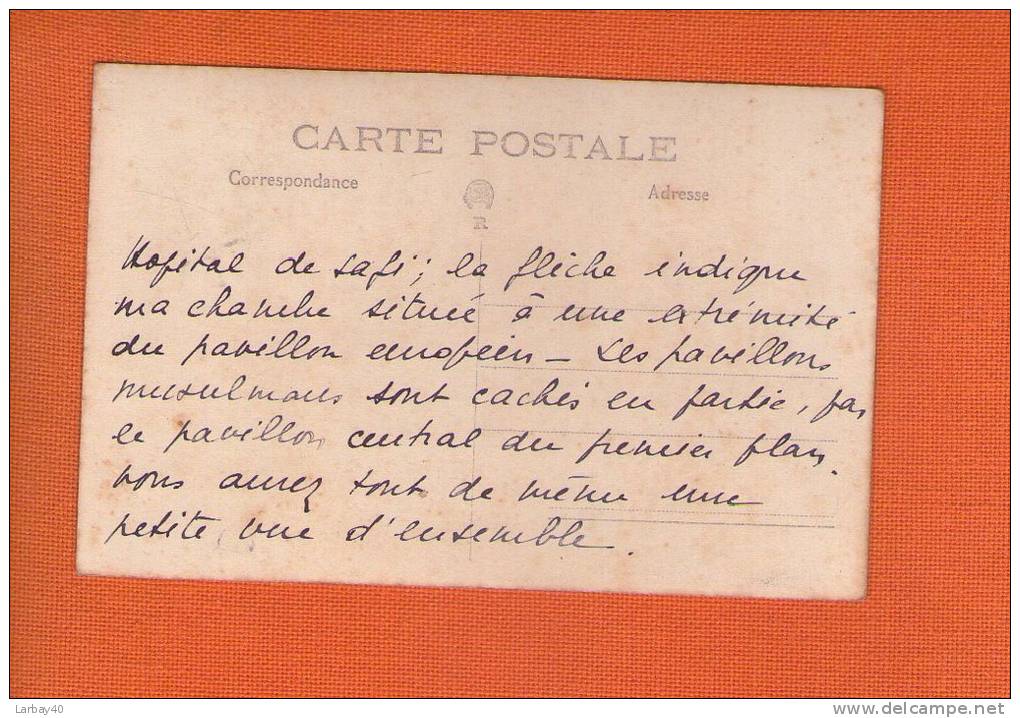 CARTE POSTALE
Correspondance
Adresse
R
Hopital de Safi ; la flèche indique
ma chambre située à une extrémité
du pavillon européen – Les pavillons
musulmans sont cachés en partie, par
le pavillon central du premier plan.
vous aurez tout de même une
petite vue d'ensemble.
Larbay40
www.delcampe.net